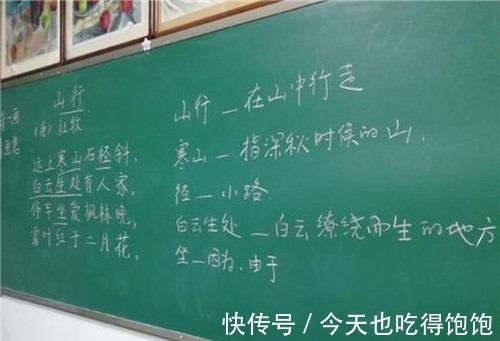 山行
(唐)杜牧
远上寒山石径斜,
白云生处有人家。
停车坐爱枫林晚,
霜叶红于二月花。
山行—在山中行走
寒山—指深秋时候的山.
径—小路.
白云生处—白云缭绕而生的地方
坐—因为、由于
快传号 / 今天也吃得饱饱